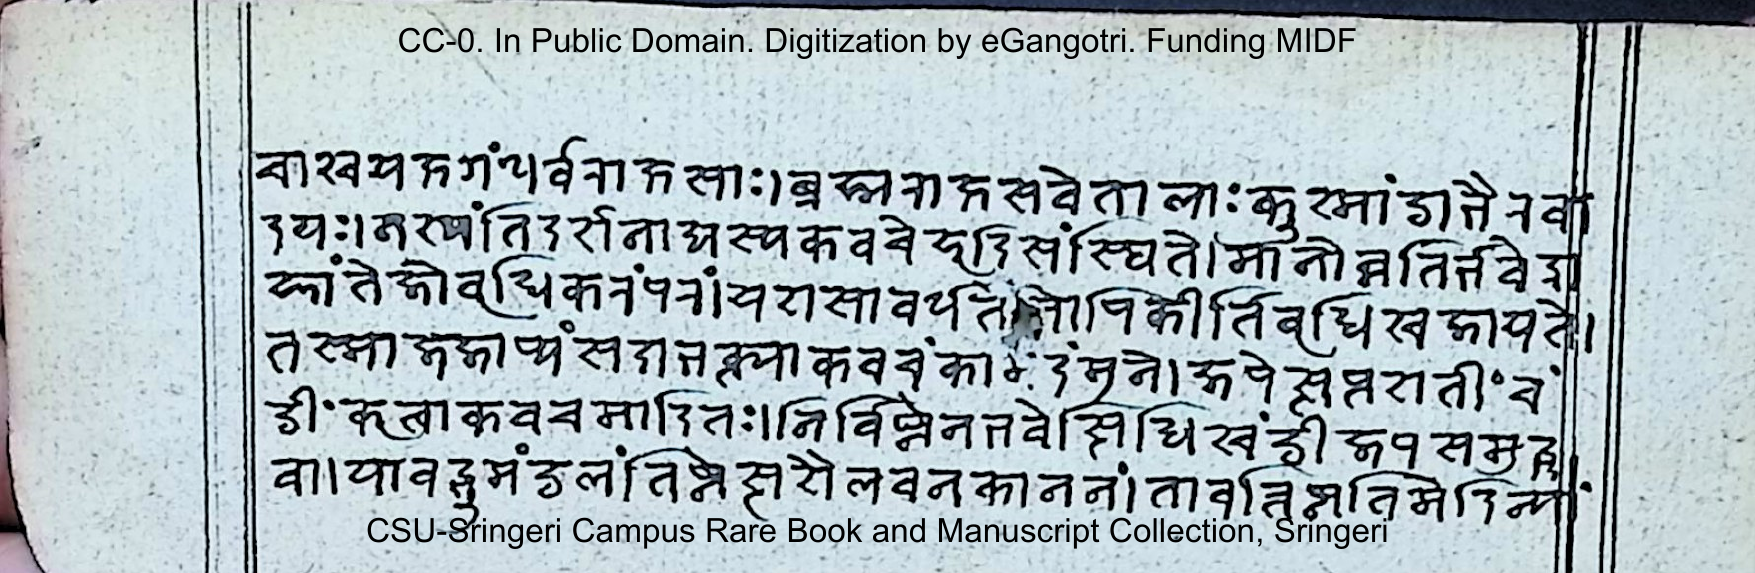 CC-0. In Public Domain. Digitization by eGangotri. Funding MIDF
चाश्च यक्षगंधर्वराक्षसाः। ब्रह्मराक्षसवेतालाः कुष्मांडा भैरवा
दयः। नश्यंति दर्शनात्तस्य कवचे हृदि संस्थिते। मानोन्नतिर्भवेद्रा
ज्ञां तेजोवृद्धिकरं परं। यशसा वर्धते सोपि कीर्तिवृद्धिश्च जायते।
तस्माज्जाप्यं सदा भक्त्या कवचं कामदं मुने। जपेत्सप्तशतीं चं
डीं कृत्वा कवचमादितः। निर्विघ्नेन भवेत्सिद्धिश्चंडीजपसमुद्भ
वा। यावद्भूमंडलं तिष्ठेत्सशैलवनकाननं। तावत्तिष्ठति मेदिन्यां
CSU-Sringeri Campus Rare Book and Manuscript Collection, Sringeri